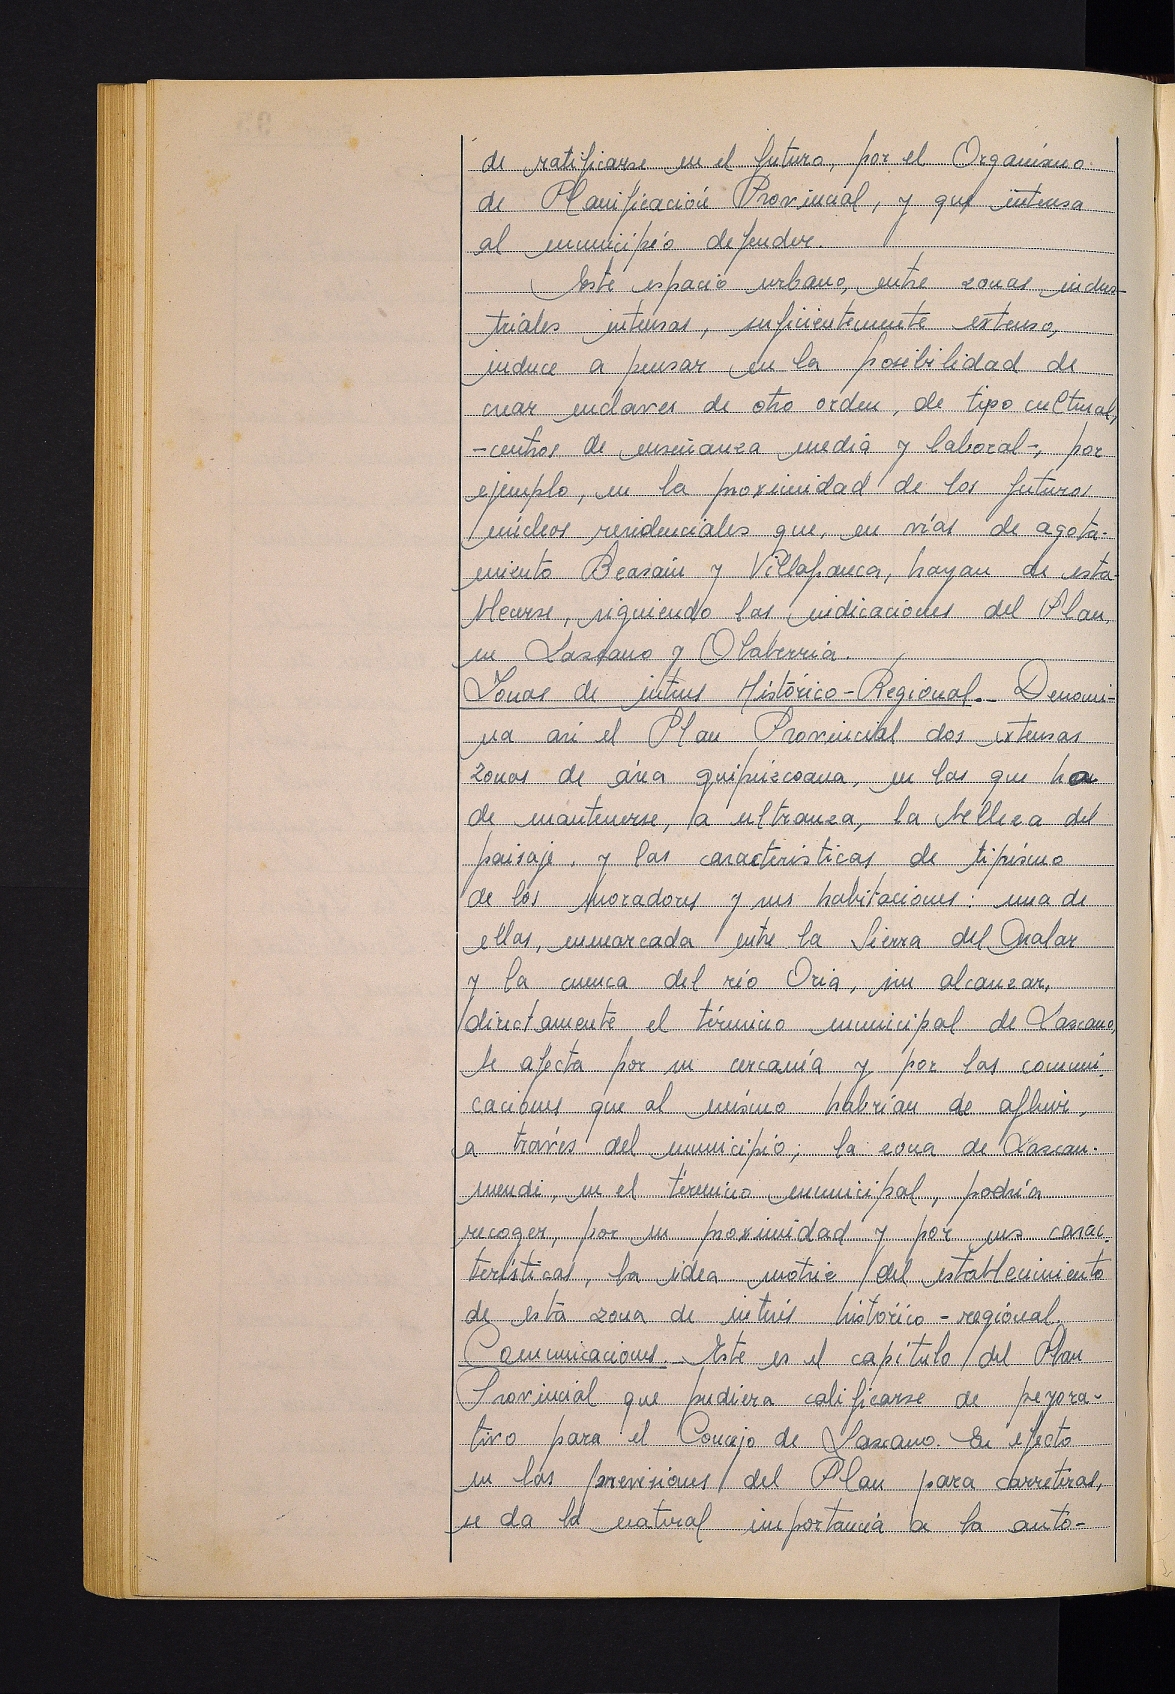 de ratificarse en el futuro, por el Organismo
de Planificación Provincial, y que intensa
al municipio defender.
Este espacio urbano, entre zonas indus-
triales intensas, suficientemente extenso,
induce a pensar en la posibilidad de
crear enclaves de otro orden, de tipo cultural,
-centros de enseñanza media y laboral-, por
ejemplo, en la proximidad de los futuros
núcleos residenciales que, en vías de agota-
miento Beasain y Villafranca, hayan de esta-
blecerse, siguiendo las indicaciones del Plan,
en Lazcano y Olaberria.
Zonas de interés Histórico-Regional.- Denomi-
na así el Plan Provincial dos extensas
zonas de área guipuzcoana, en las que ha
de mantenerse, a ultranza, la belleza del
paisaje, y las características de tipismo
de los moradores y sus habitaciones: una de
ellas, enmarcada entre la Sierra del Aralar
y la cuenca del río Oria, sin alcanzar,
directamente el término municipal de Lazcano,
le afecta por su cercanía y por las comuni-
caciones que al mismo habrían de afluir,
a través del municipio; la zona de Lazcan-
mendi, en el término municipal, podría
recoger, por su proximidad y por sus carac-
terísticas, la idea motriz del establecimiento
de esta zona de interés histórico-regional.
Comunicaciones.- Este es el capítulo del Plan
Provincial que pudiera calificarse de peyora-
tivo para el Concejo de Lazcano. En efecto
en las previsiones del Plan para carreteras,
se da la natural importancia a la auto-